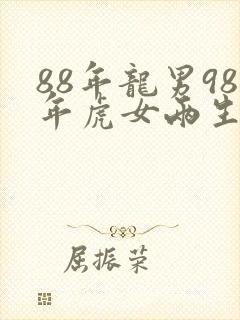 88年龍男98
年虎女兩生
屈振荣